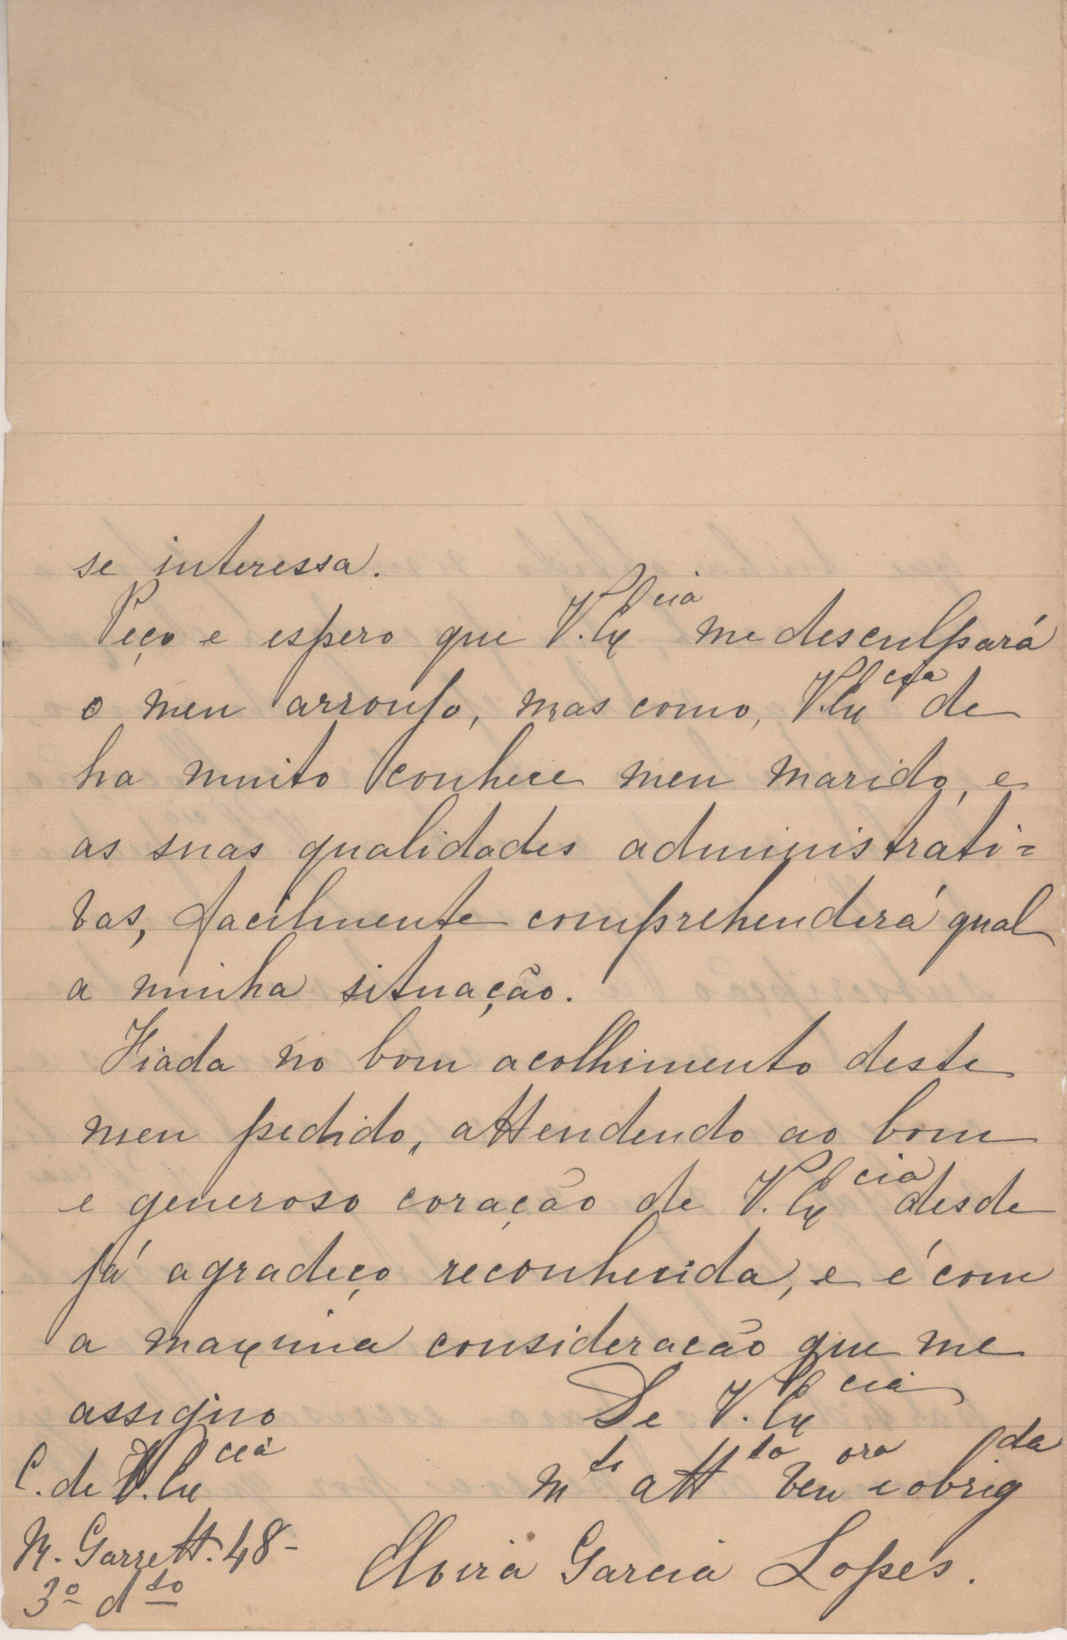 se interessa.
Peço e espero que V. Ex.cia me desculpará
o meu arroujo, mas como, V. Ex.cia de
ha muito conhece meu marido, e
as suas qualidades administrati=
vas, facilmente comprehenderá qual
a minha situação.
Fiada no bom acolhimento deste
meu pedido, attendendo ao bom
e generoso coração de V. Ex.cia desde
já agradeço reconhecida, e é com
a maxima consideracão que me
assigno De V. Ex.cia
C. de V. Ex.cia m.to att.ta ven.ora e obrig.da
R. Garrett. 48-
3º d.to
Elvira Garcia Lopes.